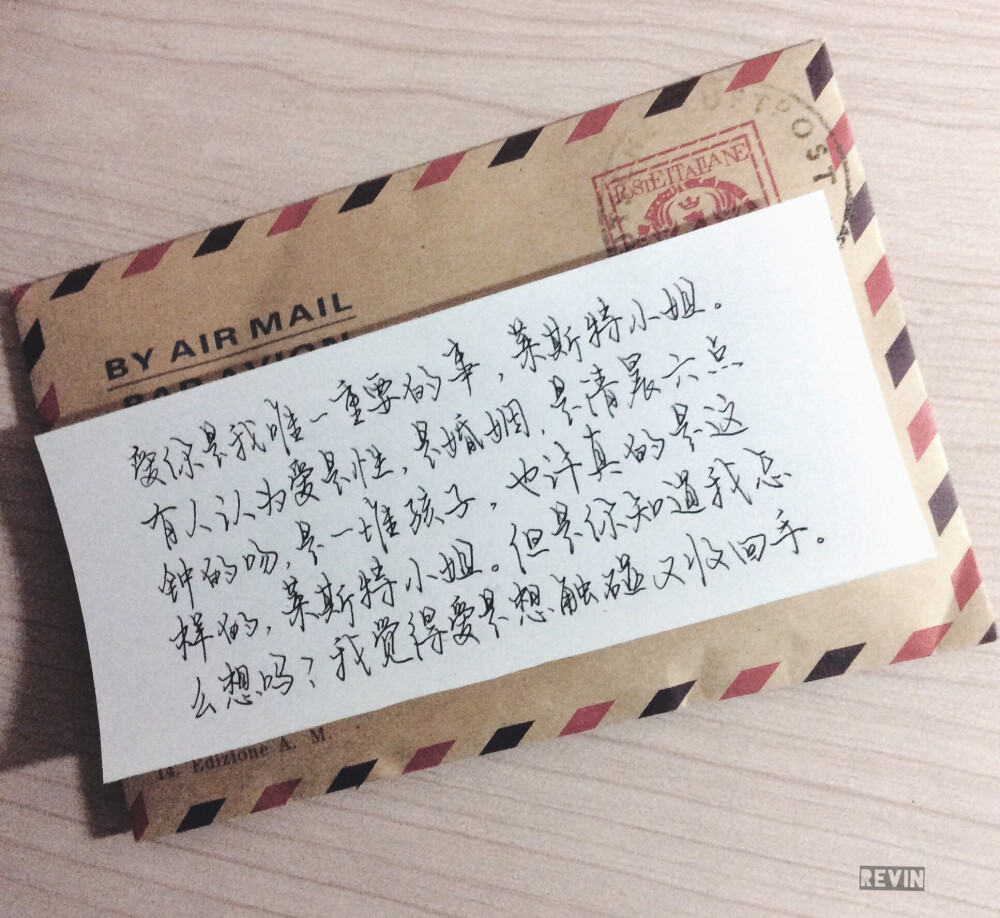 LUFTPOST
POSTE ITALIANE
BY AIR MAIL
PAR AVION
爱你是我唯一重要的事，莱斯特小姐。
有人认为爱是性，是婚姻，是清晨六点
钟的吻，是一堆孩子，也许真的是这
样的，莱斯特小姐。但是你知道我怎
么想吗？我觉得爱是想触碰又收回手。
14. Edizione A. M.
REVIN